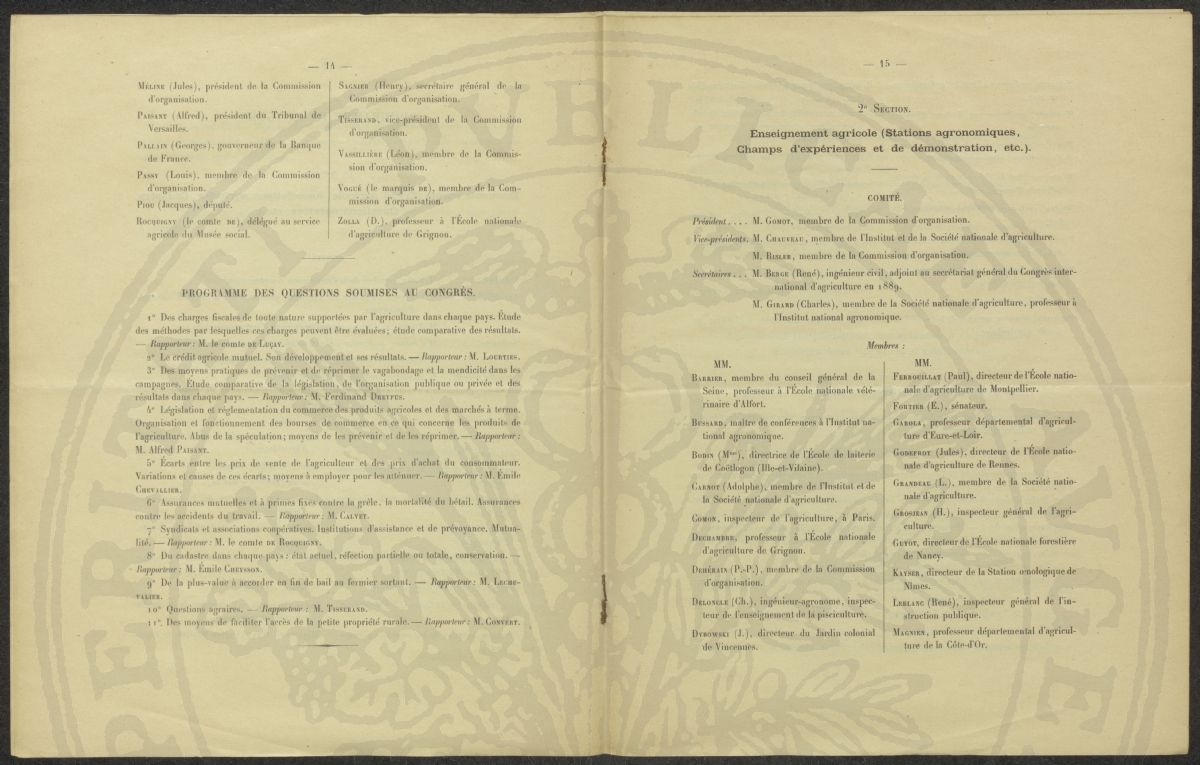 — 14 —
MÉLINE (Jules), président de la Commission
d'organisation.
PAISANT (Alfred), président du Tribunal de
Versailles.
PALLAIN (Georges), gouverneur de la Banque
de France.
PASSY (Louis), membre de la Commission
d'organisation.
PIOU (Jacques), député.
ROCQUIGNY (le comte DE), délégué au service
agricole du Musée social.
SAGNIER (Henry), secrétaire général de la
Commission d'organisation.
TISSERAND, vice-président de la Commission
d'organisation.
VASSILLIÈRE (Léon), membre de la Commis-
sion d'organisation.
VOGUÉ (le marquis DE), membre de la Com-
mission d'organisation.
ZOLLA (D.), professeur à l'École nationale
d'agriculture de Grignon.
PROGRAMME DES QUESTIONS SOUMISES AU CONGRÈS.
1° Des charges fiscales de toute nature supportées par l'agriculture dans chaque pays. Étude
des méthodes par lesquelles ces charges peuvent être évaluées; étude comparative des résultats.
— Rapporteur : M. le comte DE LUÇAY.
2° Le crédit agricole mutuel. Son développement et ses résultats. — Rapporteur : M. LOURTIES.
3° Des moyens pratiques de prévenir et de réprimer le vagabondage et la mendicité dans les
campagnes. Étude comparative de la législation, de l'organisation publique ou privée et des
résultats dans chaque pays. — Rapporteur : M. Ferdinand DREYFUS.
4° Législation et réglementation du commerce des produits agricoles et des marchés à terme.
Organisation et fonctionnement des bourses de commerce en ce qui concerne les produits de
l'agriculture. Abus de la spéculation; moyens de les prévenir et de les réprimer. — Rapporteur :
M. Alfred PAISANT.
5° Écarts entre les prix de vente de l'agriculteur et des prix d'achat du consommateur.
Variations et causes de ces écarts; moyens à employer pour les atténuer. — Rapporteur : M. Émile
CHEVALLIER.
6° Assurances mutuelles et à primes fixes contre la grêle, la mortalité du bétail. Assurances
contre les accidents du travail. — Rapporteur : M. CALVET.
7° Syndicats et associations coopératives. Institutions d'assistance et de prévoyance. Mutua-
lité. — Rapporteur : M. le comte DE ROCQUIGNY.
8° Du cadastre dans chaque pays : état actuel, réfection partielle ou totale, conservation. —
Rapporteur : M. Émile CHEYSSON.
9° De la plus-value à accorder en fin de bail au fermier sortant. — Rapporteur : M. LECHE-
VALIER.
10° Questions agraires. — Rapporteur : M. TISSERAND.
11°. Des moyens de faciliter l'accès de la petite propriété rurale. — Rapporteur : M. CONVERT.
— 15 —
2° SECTION.
Enseignement agricole (Stations agronomiques,
Champs d'expériences et de démonstration, etc.).
COMITÉ.
Président . . . . M. GOMOT, membre de la Commission d'organisation.
Vice-présidents. M. CHAUVEAU, membre de l'Institut et de la Société nationale d'agriculture.
M. RISLER, membre de la Commission d'organisation.
Secrétaires . . . M. BERGE (René), ingénieur civil, adjoint au secrétariat général du Congrès inter-
national d'agriculture en 1889.
M. GIRARD (Charles), membre de la Société nationale d'agriculture, professeur à
l'Institut national agronomique.
Membres :
MM.
BARRIER, membre du conseil général de la
Seine, professeur à l'École nationale vété-
rinaire d'Alfort.
BESSARD, maître de conférences à l'Institut na-
tional agronomique.
BODIN (Mme), directrice de l'École de laiterie
de Coëtlogon (Ille-et-Vilaine).
CARNOT (Adolphe), membre de l'Institut et de
la Société nationale d'agriculture.
COMON, inspecteur de l'agriculture, à Paris.
DECHAMBRE, professeur à l'École nationale
d'agriculture de Grignon.
DEHÉRAIN (P.-P.), membre de la Commission
d'organisation.
DELONCLE (Ch.), ingénieur-agronome, inspec-
teur de l'enseignement de la pisciculture.
DYBOWSKI (J.), directeur du Jardin colonial
de Vincennes.
MM.
FERROUILLAT (Paul), directeur de l'École natio-
nale d'agriculture de Montpellier.
FORTIER (E.), sénateur.
GAROLA, professeur départemental d'agricul-
ture d'Eure-et-Loir.
GODEFROY (Jules), directeur de l'École natio-
nale d'agriculture de Rennes.
GRANDEAU (L.), membre de la Société natio-
nale d'agriculture.
GROSJEAN (H.), inspecteur général de l'agri-
culture.
GUYOT, directeur de l'École nationale forestière
de Nancy.
KAYSER, directeur de la Station œnologique de
Nîmes.
LEBLANC (René), inspecteur général de l'in-
struction publique.
MAGNIEN, professeur départemental d'agricul-
ture de la Côte-d'Or.